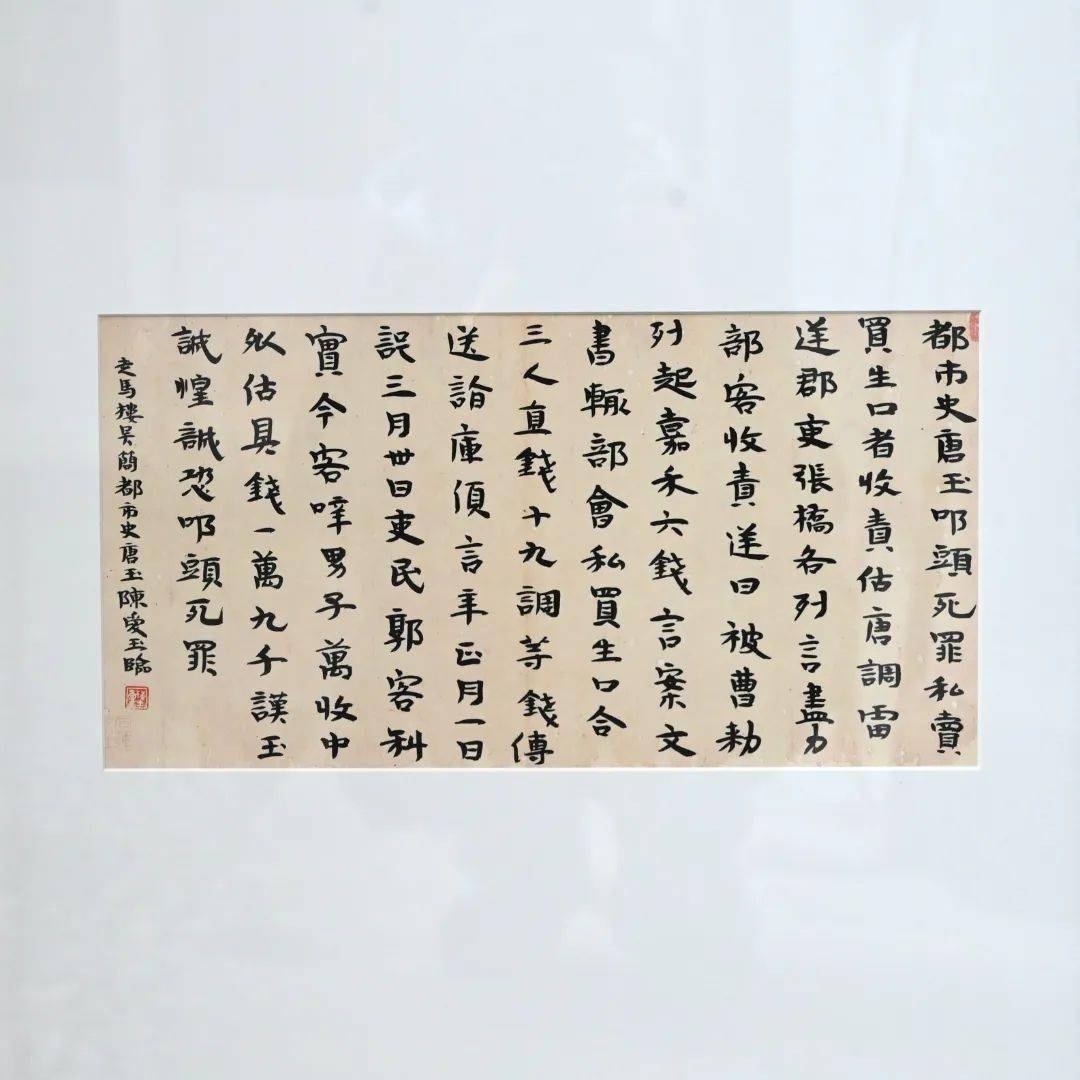 都市史唐玉叩頭死罪私賣
買生口者收責估唐調雷
逆郡吏張橋各列言盡力
部客收責逆曰被曹勑
列起嘉禾六錢言案文
書輒部會私買生口合
三人直錢十九調等錢傳
送詣庫傎言年正月一日
誤三月卅日吏民郭客料
實今客嘩男子萬收中
外估具錢一萬九千謹玉
誠惶誠恐叩頭死罪
走馬樓吳簡都市史唐玉陳愛玉臨